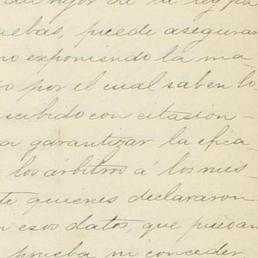 de la ley pa
uebas, puede asegurar
no exponiendo la ma
o por el cual saben lo
scibido con citacion
a garantizar la efica
los árbitros á los mis
te quienes declararon
n esos datos, que puedan
prueba ni conceder